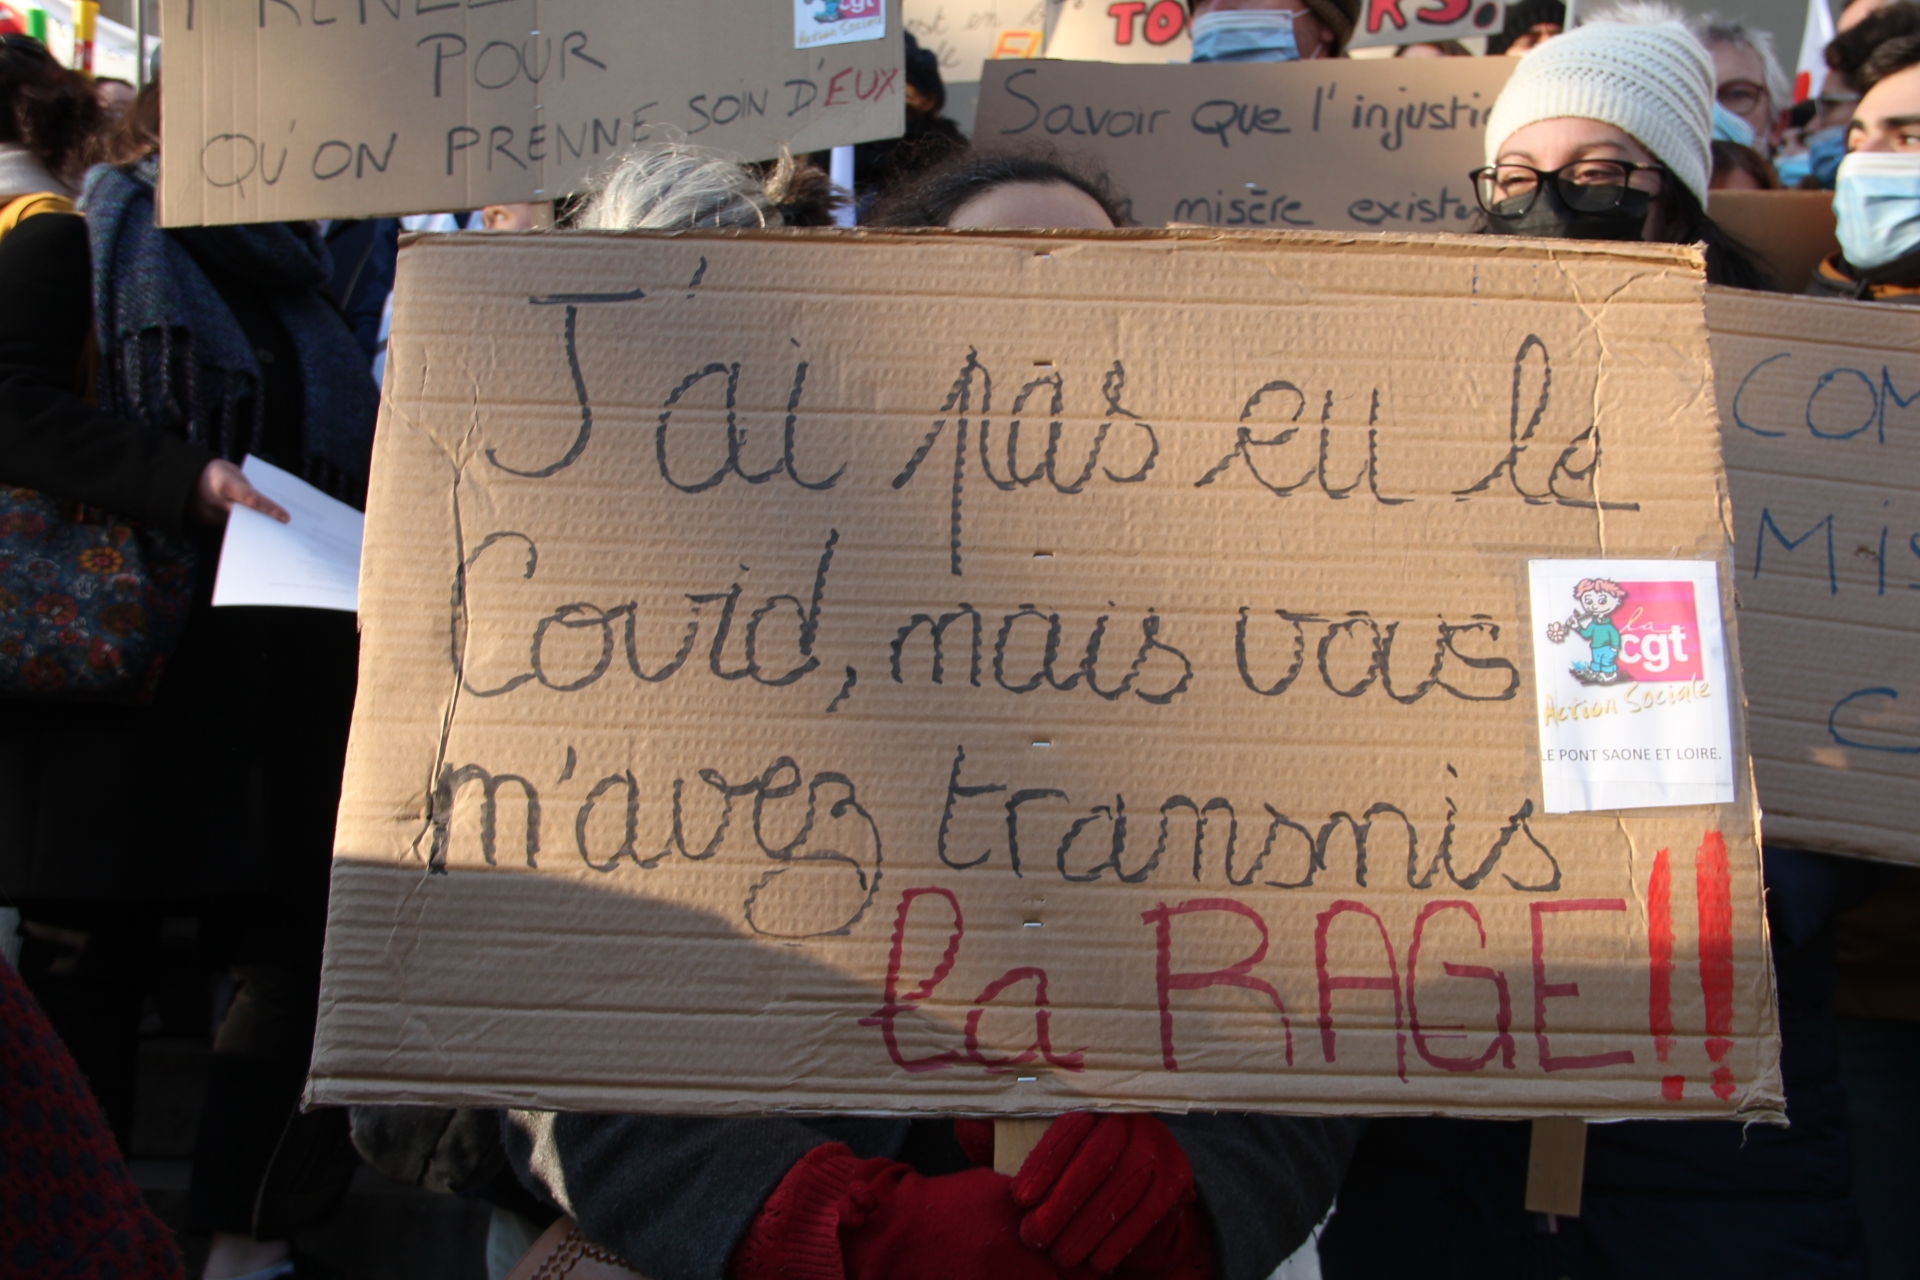 POUR
QU'ON PRENNE SOIN D'EUX
cgt
Action Sociale
Savoir que l'
misère
J'ai pas eu la
Covid, mais vous
m'avez transmis
la RAGE!!
la
cgt
Action Sociale
LE PONT SAONE ET LOIRE.